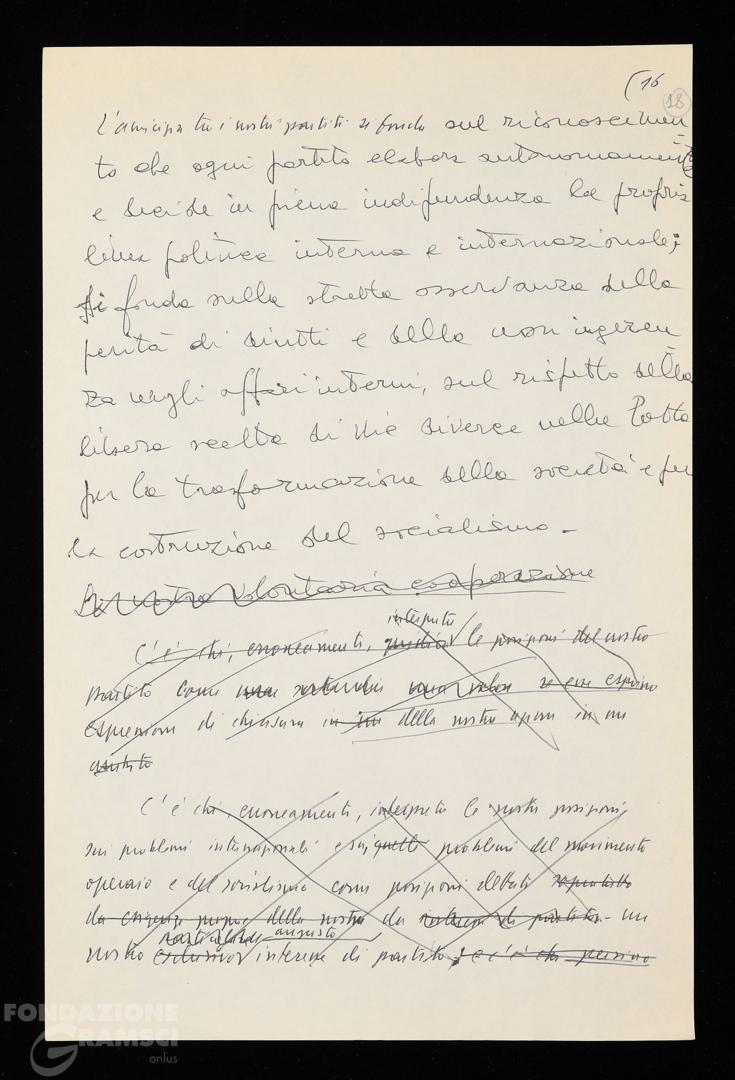 (16
18
L'amicizia tra i nostri partiti si fonda sul riconoscimen
to che ogni partito elabora autonomamente
e decide in piena indipendenza la propria
linea politica interna e internazionale;
si fonda sulla stretta osservanza della
parità di diritti e della non ingeren
za negli affari interni, sul rispetto della
libera scelta di vie diverse nella lotta
per la trasformazione della società e per
la costruzione del socialismo -
La nostra volontaria cooperazione
interpreta
C'è chi, erroneamente, giudica le posizioni del nostro
partito come
espressioni di chiusura in della nostra azione in un
ambito
C'è chi, erroneamente, interpreta le nostre posizioni,
sui problemi internazionali e sui quelli problemi del movimento
operaio e del socialismo come posizioni dettate soprattutto
da esigenze proprie della nostra da un
particolare angusto
nostro esclusivo interesse di partito, se c'è chi persino
FONDAZIONE
GRAMSCI
onlus